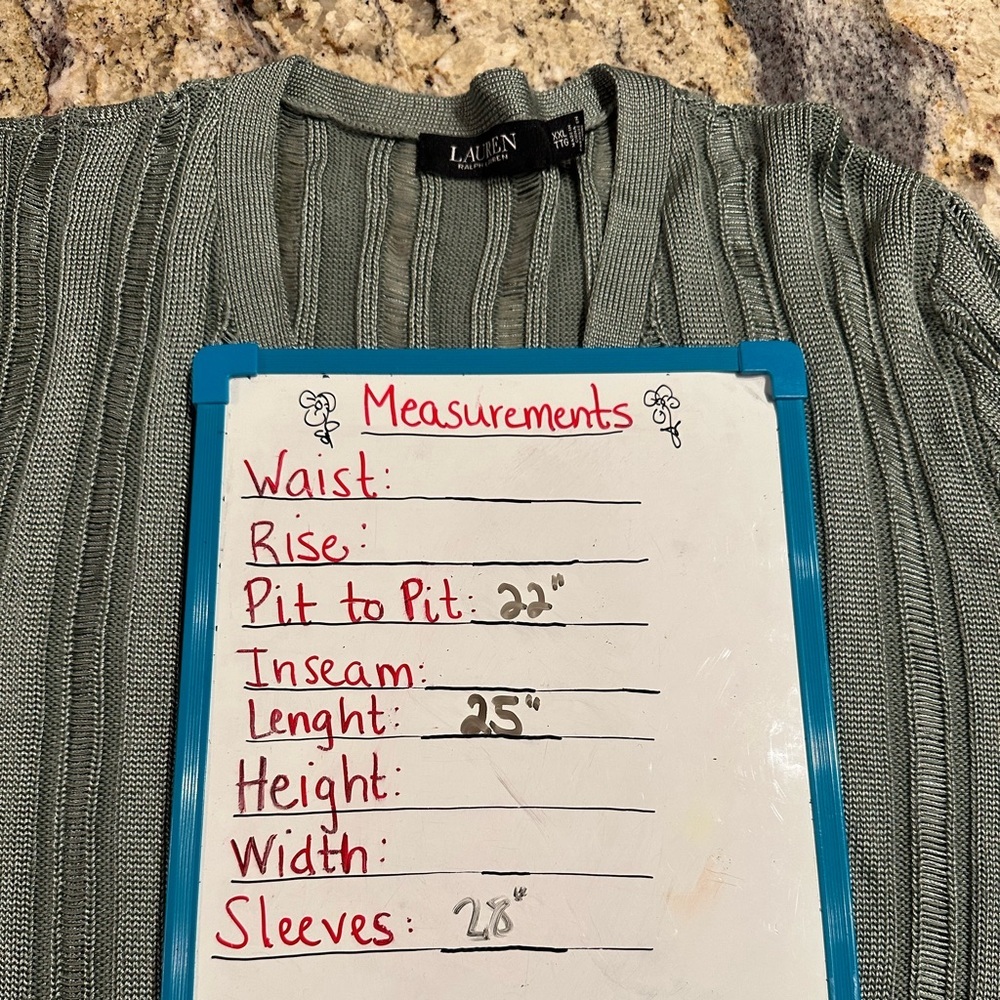 LAUREN
RALPH LAUREN
XXL
TTG
Measurements
Waist:
Rise:
Pit to Pit: 22"
Inseam:
Lenght: 25"
Height:
Width:
Sleeves: 28"